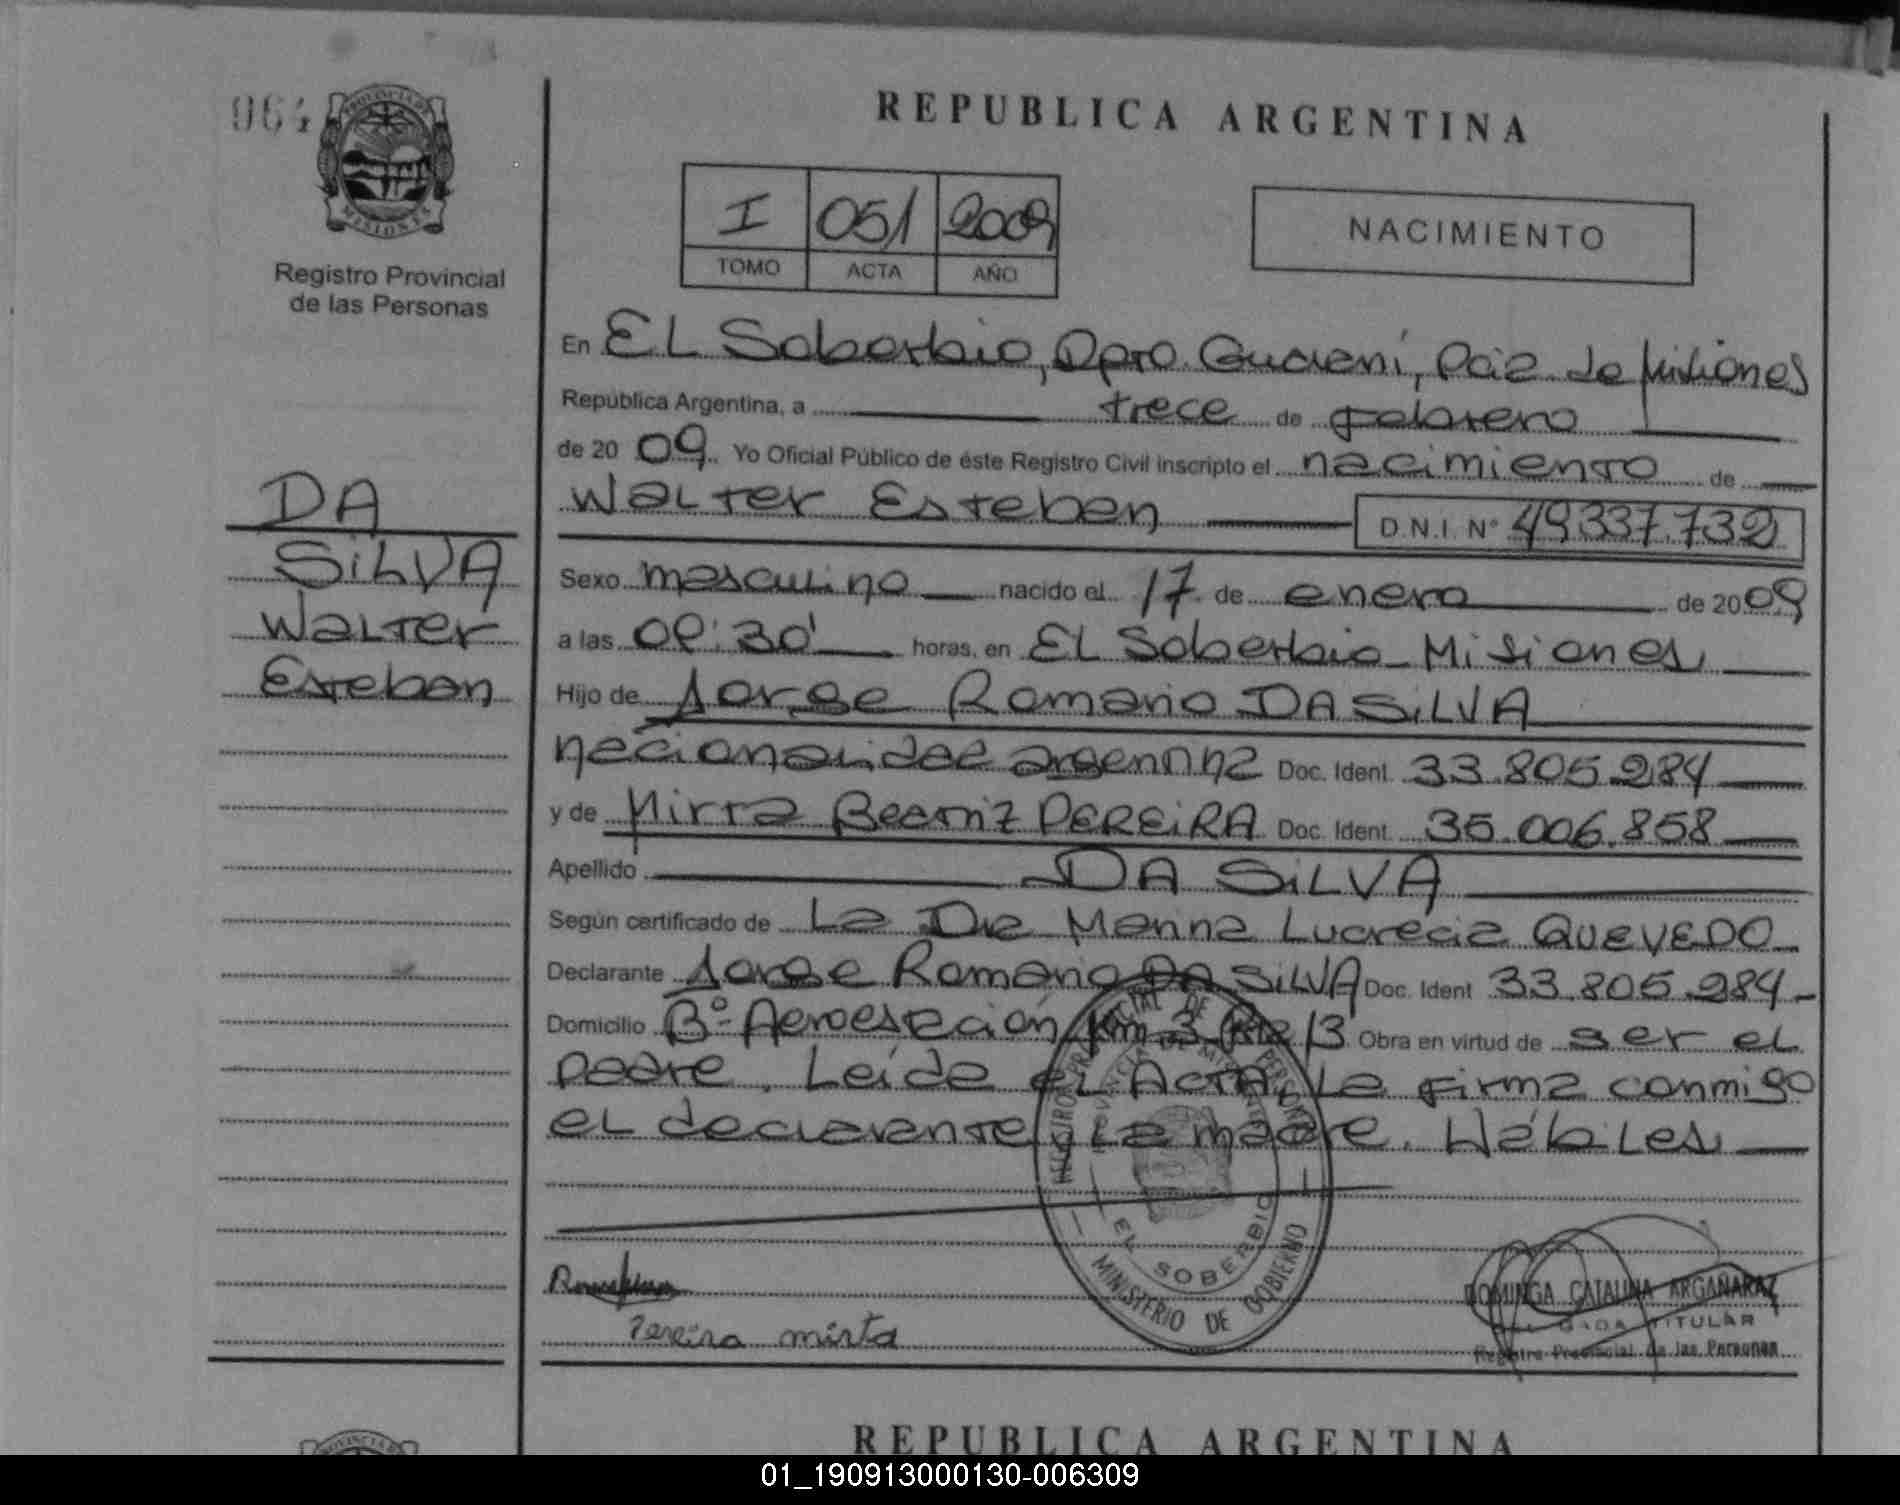 064
PROVINCIA DE
MISIONES
Registro Provincial
de las Personas
DA
SiLVA
Walter
Esteban
REPUBLICA ARGENTINA
I 051 2009
TOMO ACTA AÑO
NACIMIENTO
En EL Soberbio, Dpto. Guaraní, Pcia de Misiones
República Argentina, a trece de febrero
de 20 09 Yo Oficial Público de éste Registro Civil inscripto el nacimiento de
Walter Esteban D.N.I. Nº 49337.732
Sexo masculino nacido el 17 de enero de 20 09
a las 09:30' horas, en EL Soberbio Misiones
Hijo de Jorge Romano DA SiLVA
nacionalidad argentina Doc. Ident. 33.805.284
y de Mirta Beatriz PEREiRA Doc. Ident. 35.006.858
Apellido DA SiLVA
Según certificado de La Dra Marina Lucrecia QUEVEDO
Declarante Jorge Romano DA SiLVA Doc. Ident 33.805.284
Domicilio Bº Aeroestación km 3 Obra en virtud de ser el
padre. Leída el ACTA, La firma conmigo
el declarante y La madre. Hábiles
EL SOBERBIO
MINISTERIO DE GOBIERNO
Pereira mirta
DOMINGA CATALINA ARGAÑARAZ
TITULAR
Registro Provincial de las Personas
REPUBLICA ARGENTINA
01_190913000130-006309